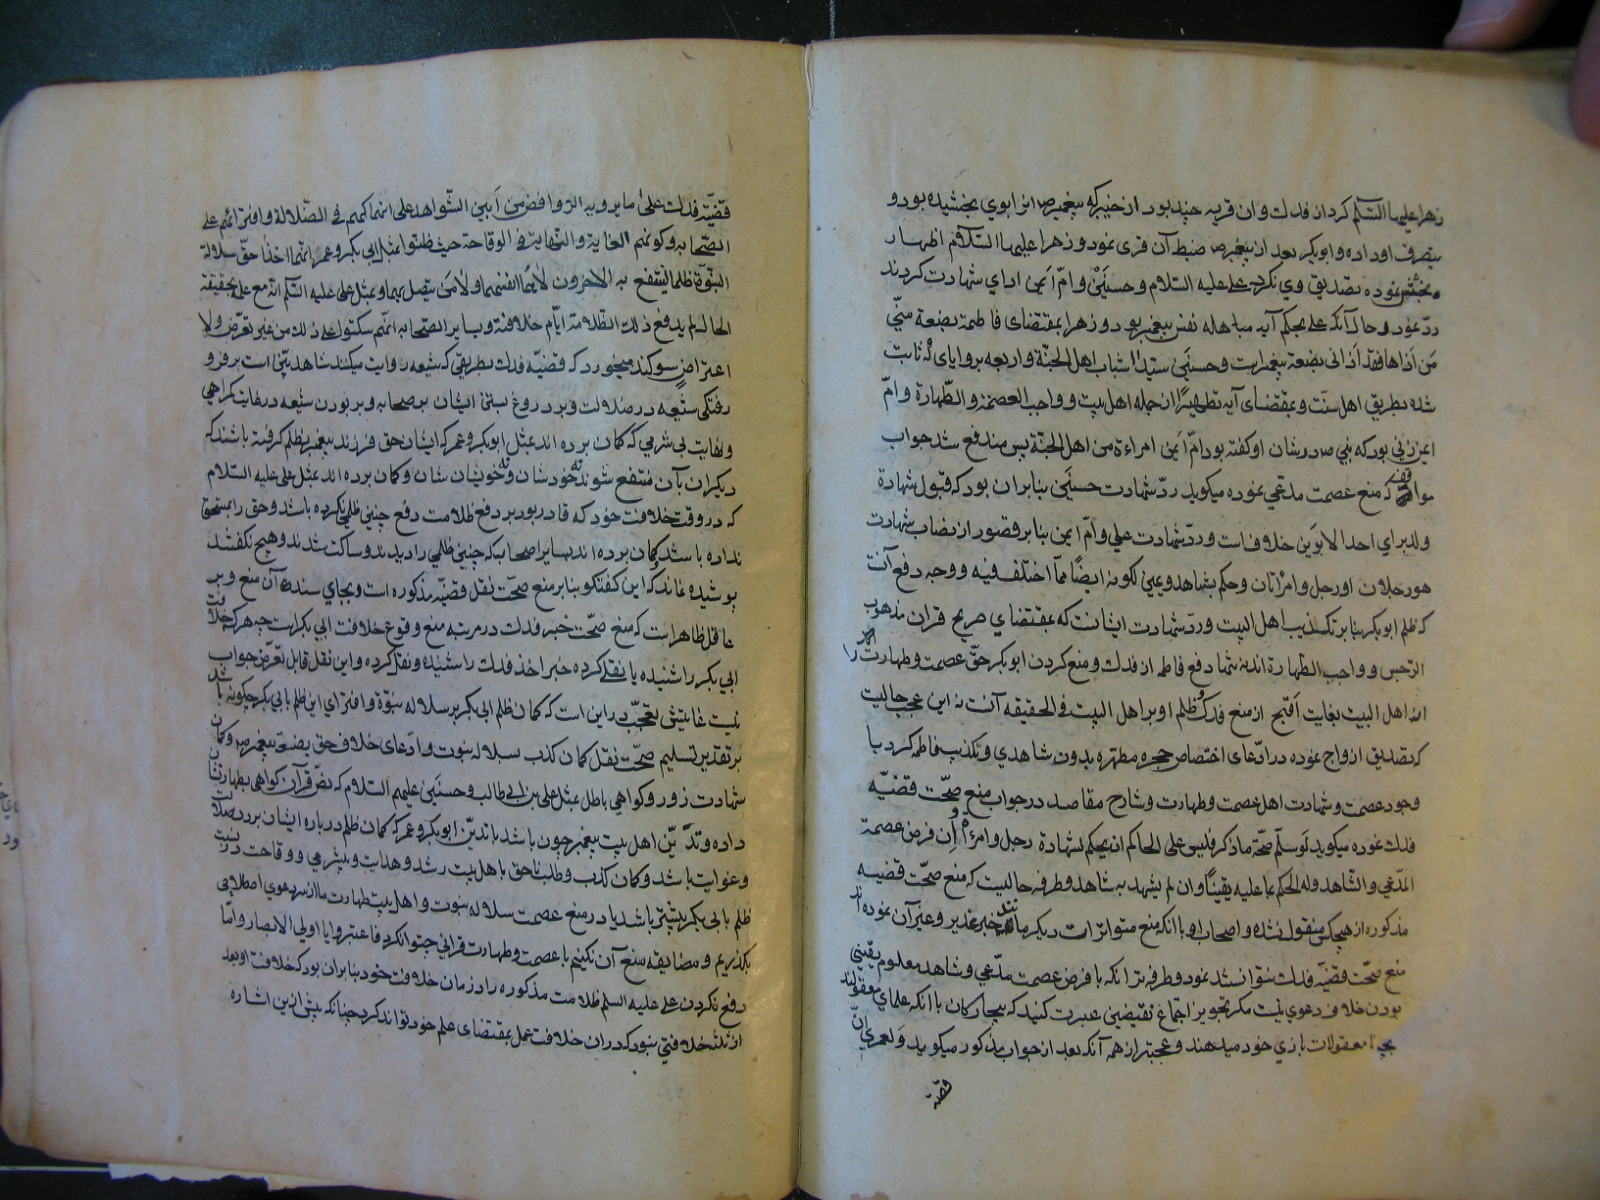 زهرا علیها السّلم کرد از فدك و ان قریه چند بود از خیبر که پیغمبر ص انرا بوی بخشیده بود و
بتصرف او داده و ابو بکر بعد از پیغمبر ص ضبط آن قری نمود و زهرا علیها السّلام اظهار
بخشش نموده تصدیق وی نکرد علی علیه السّلام و حسنین و امّ ایمن ادای شهادت کردند
ردّ نمود و حال آنکه علی بحکم آیه مباهله نفس پیغمبر بود و زهرا بمقتضای فاطمة بضعة منّی
مَن اَذاها فقد اَذانی بضعه پیغمبر است و حسنین سیّدا شباب اهل الجنّة و اربعه بروایاتی که ثابت
شده بطریق اهل سنّت و بمقتضای آیه تطهیرًا از جمله اهل بیت و واجب العصمة و الطّهارة و امّ
ایمن زنی بود که نبی ص در شان او گفته بود امّ ایمن امراءة من اهل الجنّة پس مندفع شد جواب
مواقف که منع عصمت مدّعی نموده میگوید ردّ شهادت حسنین بنابران بود که قبول شهادة
ولد برای احد الابوین خلاف است و ردّ شهادت علی و امّ ایمن بنابر قصور از نصاب شهادت
هو رجلان او رجل و امراتان و حکم بشاهد و یمین لکونه ایضًا ممّا اختلف فیه و وجه دفع آنست
که ظلم ابو بکر بنابر تکذیب اهل البیت و ردّ شهادت ایشانست که بمقتضای صریح قران مذهوب
الرّجس و واجب الطّهارة اند نه شما دفع فاطمه از فدك و منع کردن ابو بکر حقّ عصمت و طهارت را
از اهل البیت بغایت اَقبَح از منع فدك و ظلم او بر اهل البیت فی الحقیقه آنست نه این عجب حالیست
که تصدیق ازواج نموده در ادّعای اختصاص حجره مطهّره بدون شاهدی و تکذیب فاطمه کرد با
وجود عصمت و شهادت اهل عصمت و طهارت و شارح مقاصد در جواب منع صحّت قضیّه
فدك نموده میگوید لَو سلّم صحّة ما ذکر فلیس علی الحاکم ان یحکم بشهادة رجل و امرءة و اِن فرض عصمة
المدّعی و الشّاهد و له الحکم بما علیه یقینًا و ان لم یشهد به شاهد و طرفه حالیست که منع صحّت قضیه
مذکوره از هیچکس منقول نشده و اصحاب او با آنکه منع متواترات دیگر مانند خبر غدیر و غیر آن نموده اند
منع صحّت قضیّه فدك نتوانستند نمود و طرفه تر انکه با فرض عصمت مدّعی و شاهد معلوم یقینی
بودن خلاف دعوی نیست مگر تجویز اجتماع نقیضین عبرت کنید که بیچارکان با انکه علمای معقولند
بچه نا معقولات بازی خود میدهند و عجبتر از همه آنکه بعد از جواب مذکور میگوید و لعمری انّ
قصّة
قضیّة فدك علی ما یرویه الرّوافض من اَبین الشّواهد علی انهماکهم فی الضّلالة و افترائهم علی
الصّحابه و کونهم الغایة و النّهایة فی الوقاحة حیث ظنّوا بمثل ابی بکر و عمر انّهما اخذا حقّ سلالة
النّبوّة ظلما لینتفع به الاخرون لا هُما انفسهما و لا من یتّصل بهما و بمثل علی علیه السّلم انّه مع علمه بحقیقة
الحال لم یدفع ذلك الظّلامة ایّام خلافته و بسایر الصّحابه انّهم سکتوا علی ذلك من غیر تعرّض و لا
اعتراض سوکند میخورد که قضیّه فدك بطریقی که شیعه روایت میکنند شاهد بیّنی است بر فرو
رفتکی شیعه در ضلالت و بر دروغ بستن ایشان بر صحابه و بر بودن شیعه در غایت کمراهی
و نهایت بی شرمی که کمان برده اند بمثل ابو بکر و عمر که ایشان حق فرزند پیغمبر بظلم کرفته باشند که
دیکران بآن منتفع شوند نه خودشان و نه خویشان شان و کمان برده اند بمثل علی علیه السّلام
که در وقت خلافت خود که قادر بود بر دفع ظلامت دفع چنین ظلمی نکرده باشد و حق را بمستحق
نداده باشد و کمان برده اند بسایر اصحاب که چنین ظلمی را دیدند و ساکت شدند و هیچ نکفتند
پوشیده نماند که این کفتکو بنابر منع صحّت نقل قضیّه مذکوره است و بجای سند آن منع و بر
عاقل ظاهر است که منع صحّت خبر فدك در مرتبه منع وقوع خلافت ابی بکر است چه هر که خلافت
ابی بکر را شنیده یا نقل کرده خبر اخذ فدك را شنیده و نقل کرده و این نقل قابل تعرّض جواب
نیست غایتش تعجّب در این است که کمان ظلم ابی بکر بر سلاله نبوّة و افترای این ظلم بابی بکر چکونه باشد
بر تقدیر تسلیم صحّت نقل کمان کذب سلاله نبوت و ادّعای خلاف حق بضعه پیغمبر ص و کمان
شهادت زور و کواهی باطل بمثل علی بن ابی طالب و حسنین علیهم السّلام که نصّ قرآن کواهی بطهارتشان
داده و تدیّن اهل بیت پیغمبر چون باشد یا تدیّن ابو بکر و عمر که کمان ظلم درباره ایشان بردن ضلالت
و غوایت باشد و کمان کذب و طلب ناحق باهل بیت رشد و هدایت و بیشرمی و وقاحت در نسبت
ظلم بابی بکر بیشتر باشد یا در منع عصمت سلاله نبوت و اهل بیت طهارت ما از سر دعوی اصطلاحی
بکذریم و مضایقه منع آن نکنیم با عصمت و طهارت قرانی چتوانکرد فاعتبروا یا اولی الابصار و امّا
دفع نکردن علی علیه السلم ظلامت مذکوره را در زمان خلافت خود بنابران بود که خلافت او بعد
از ثلثه خلافتی نبود که دران خلافت عمل بمقتضای علم خود تواند کرد چنانکه پیش ازین اشاره